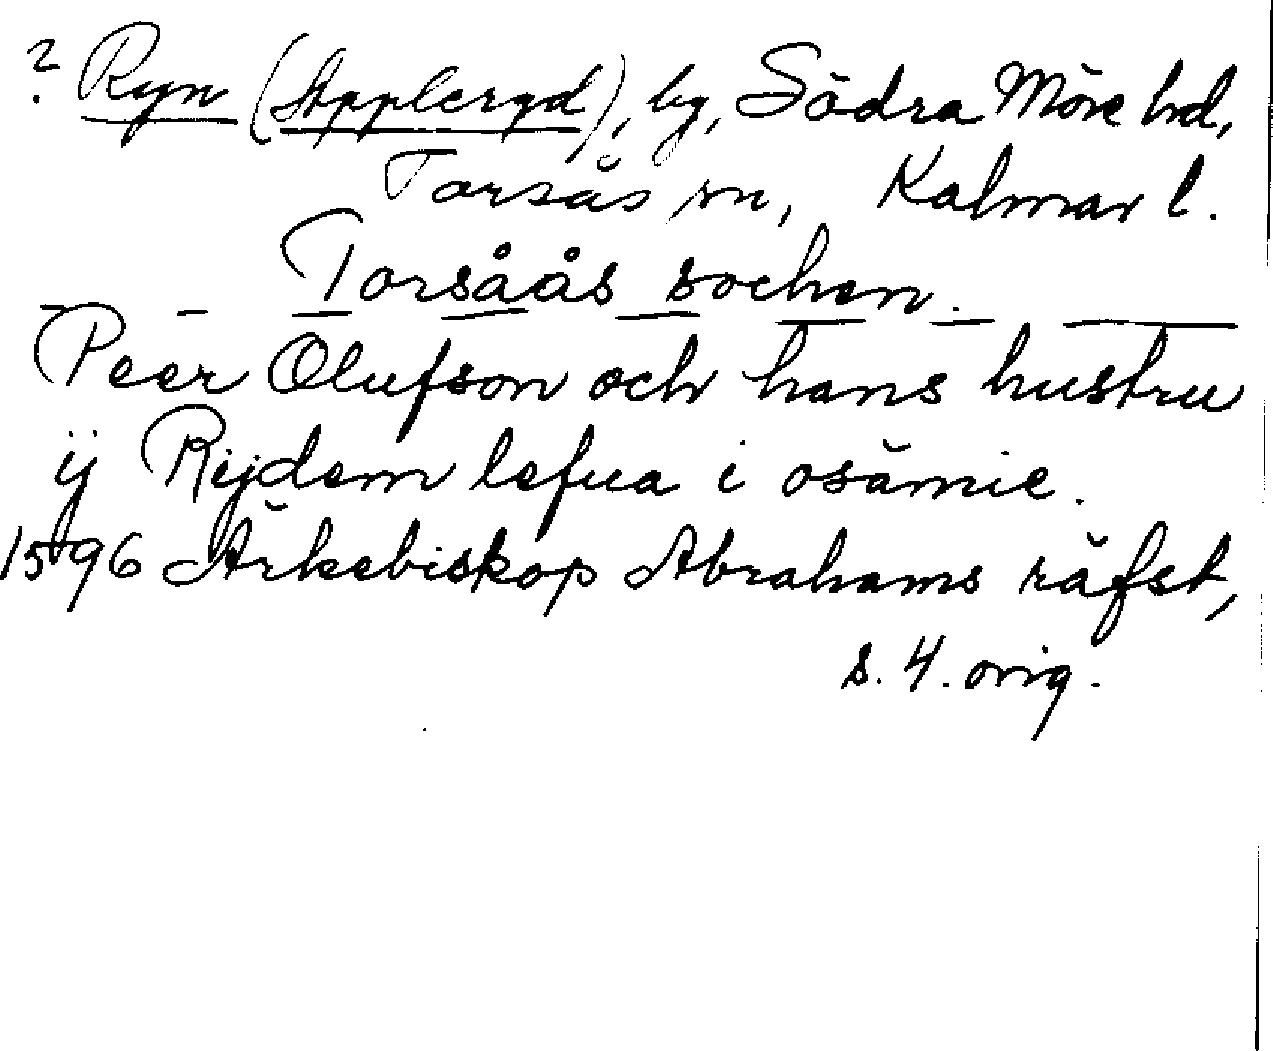 ? Ryn (Appleryd), by, Södra Möre hd,
Torsås sn, Kalmar l.
Torsåås sochen.
Peer Olufson och hans hustru
ij Rijdem lefua i osämie.
1596 Ärkebiskop Abrahams räfst,
s. 4. orig.